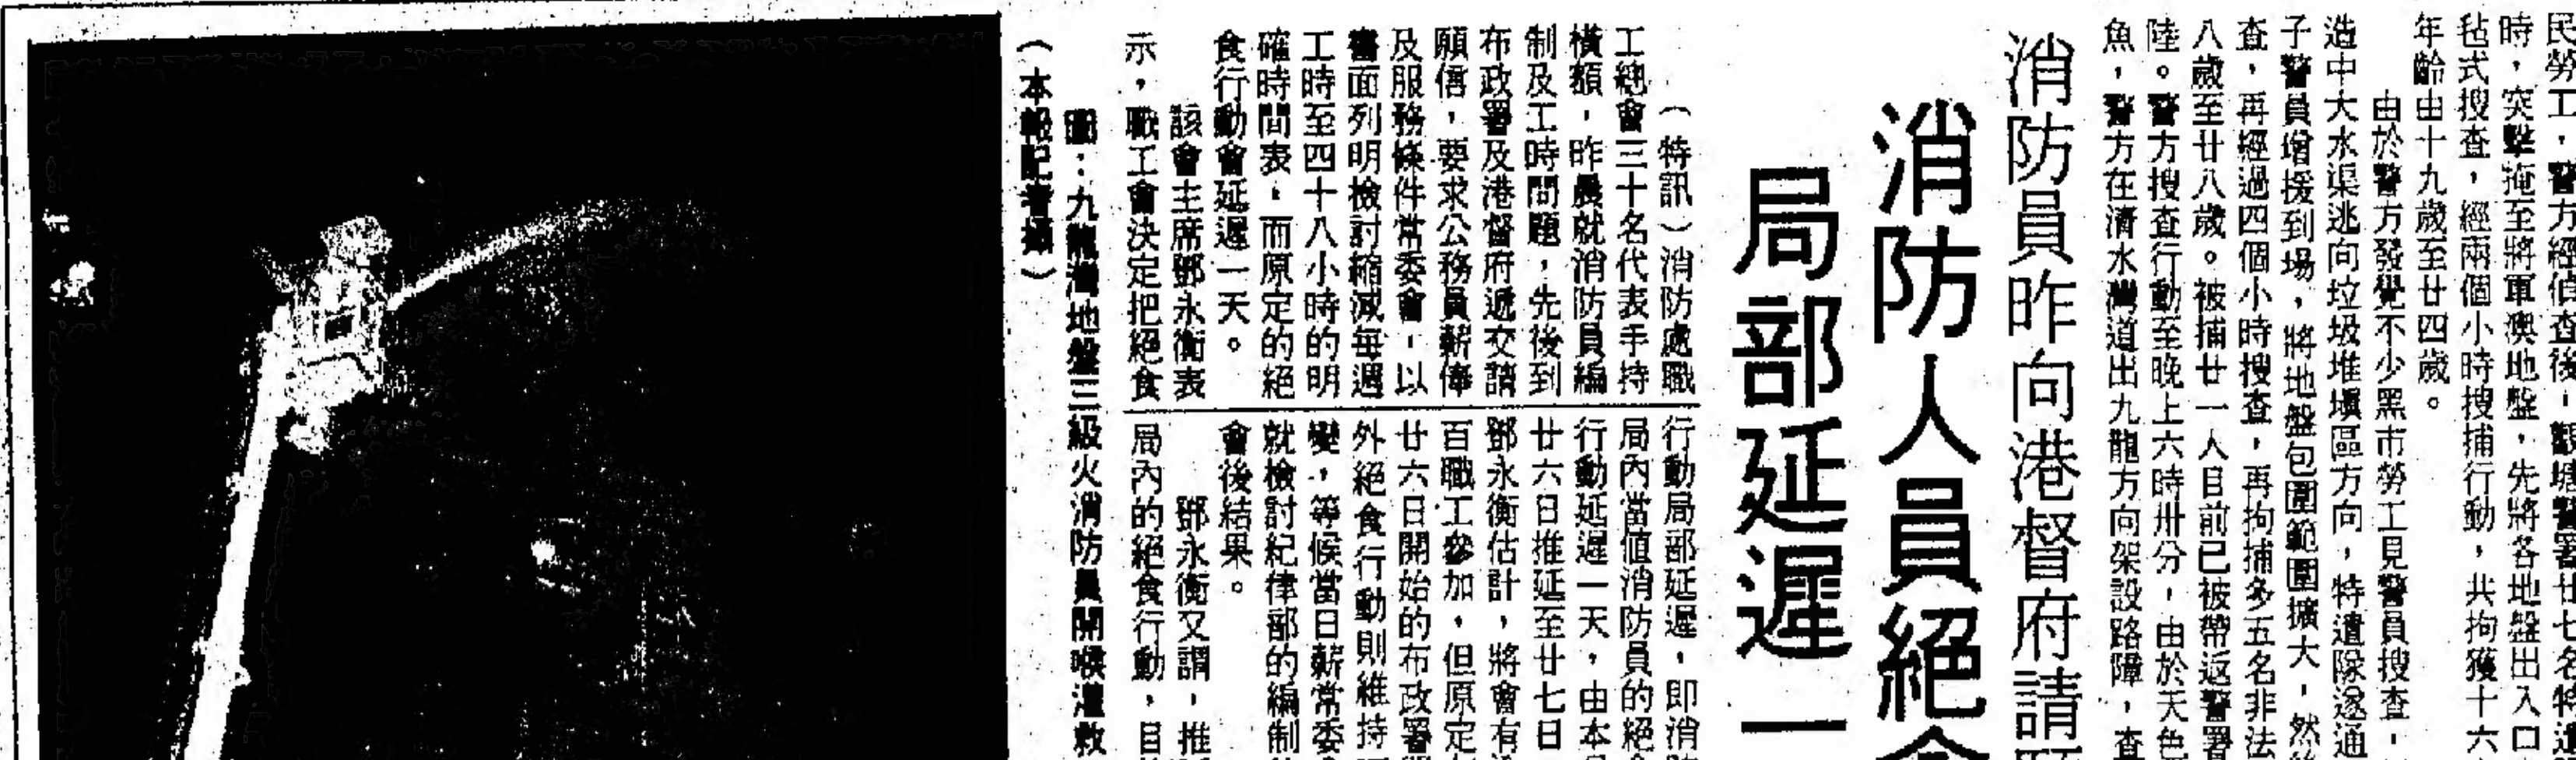 民勞工，警方經偵查後，觀塘警署廿七名特
時，突擊掩至將軍澳地盤，先將各地盤出入口
毡式搜查，經兩個小時搜捕行動，共拘獲十六
年齡由十九歲至廿四歲。
由於警方發覺不少黑市勞工見警員搜查，
造中大水渠逃向垃圾堆塡區方向，特遣隊遂通
子警員增援到場，將地盤包圍範圍擴大，然
查，再經過四個小時搜查，再拘捕多五名非法
八歲至廿八歲。被捕廿一人目前已被帶返警署
陸。警方搜查行動至晚上六時卅分，由於天色
魚，警方在清水灣道出九龍方向架設路障，查
消防員昨向港督府請
消防人員絕
局部延遲一
（特訊）消防處職
工總會三十名代表手持
橫額，昨晨就消防員編
制及工時問題，先後到
布政署及港督府遞交請
願信，要求公務員薪俸
及服務條件常委會，以
書面列明檢討縮減每週
工時至四十八小時的明
確時間表，而原定的絕
食行動會延遲一天。
該會主席鄧永衡表
示，職工會決定把絕食
行動局部延遲，即消
局內當值消防員的絕
行動延遲一天，由本
廿六日推延至廿七日
鄧永衡估計，將會有
百職工參加，但原定
廿六日開始的布政署
外絕食行動則維持
變，等候當日薪常委
就檢討紀律部的編制
會後結果。
鄧永衡又謂，推
局內的絕食行動，目
圖：九龍灣地盤三級火消防員開喉灌救
（本報記者攝）